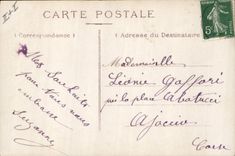 CARTE POSTALE
Correspondance
Adresse du Destinataire
Mes Souhaits
pour Vous nous
Suzanne
Mademoiselle
Léonie Gaffori
la place Abatucci
Ajaccio
Corse
5